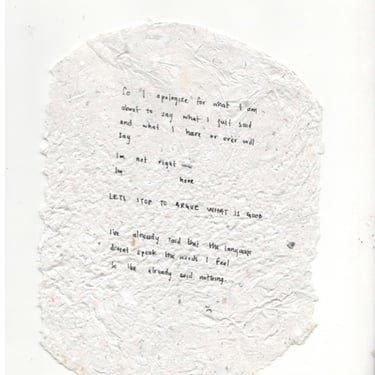 So "I apologize" for what I am
about to say what I just said
and what I have or ever will
say

Im not right
Im here

LETS STOP TO ARGUE WHAT IS GOOD

I've already said that the language
doesnt speak the words I feel
In the already said nothing.